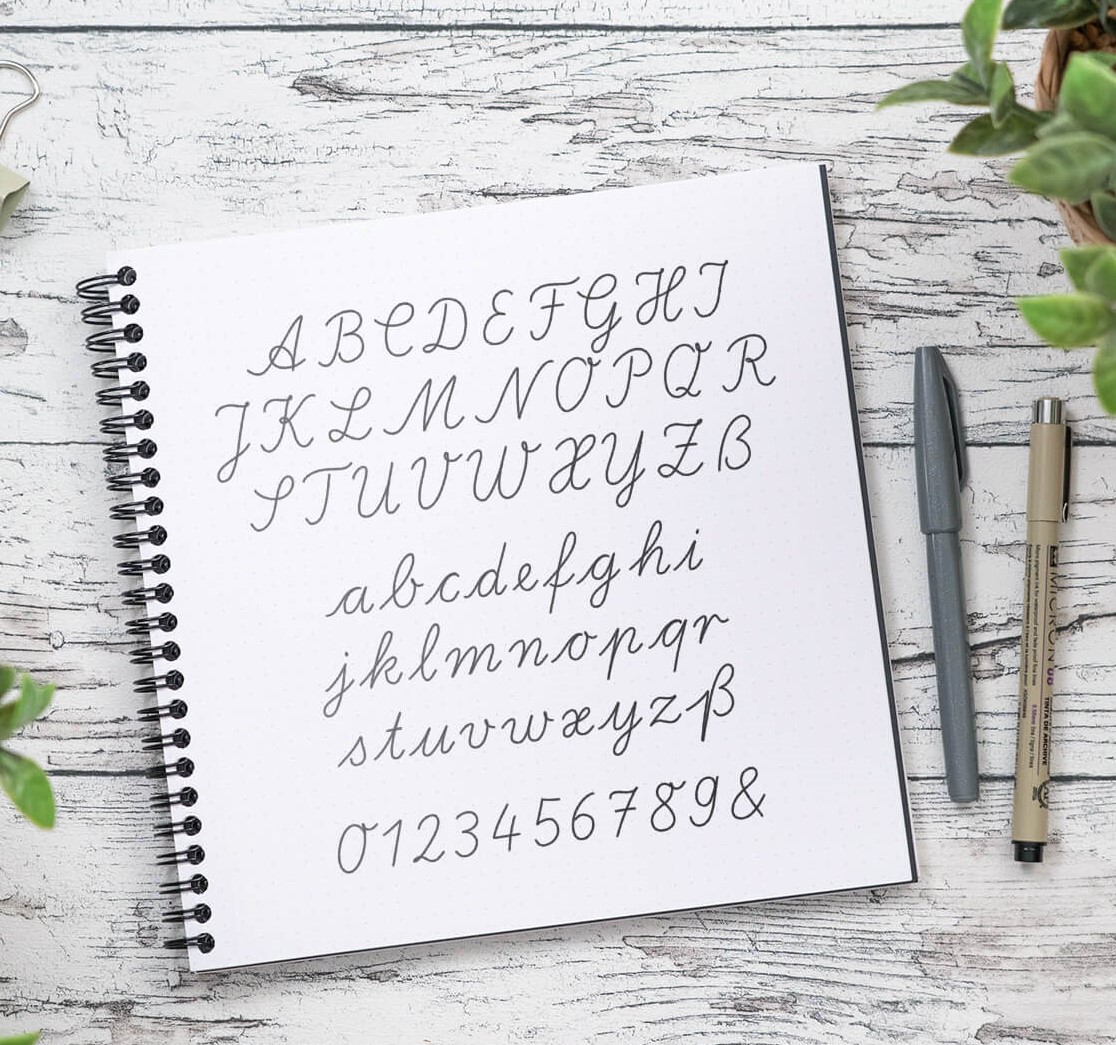 ABCDEFGHI
JKLMNOPQR
STUVWXYZẞ
abcdefghi
jklmnopqr
stuvwxyzß
0123456789&
MICRON 08
TINTA DE ARCHIVE